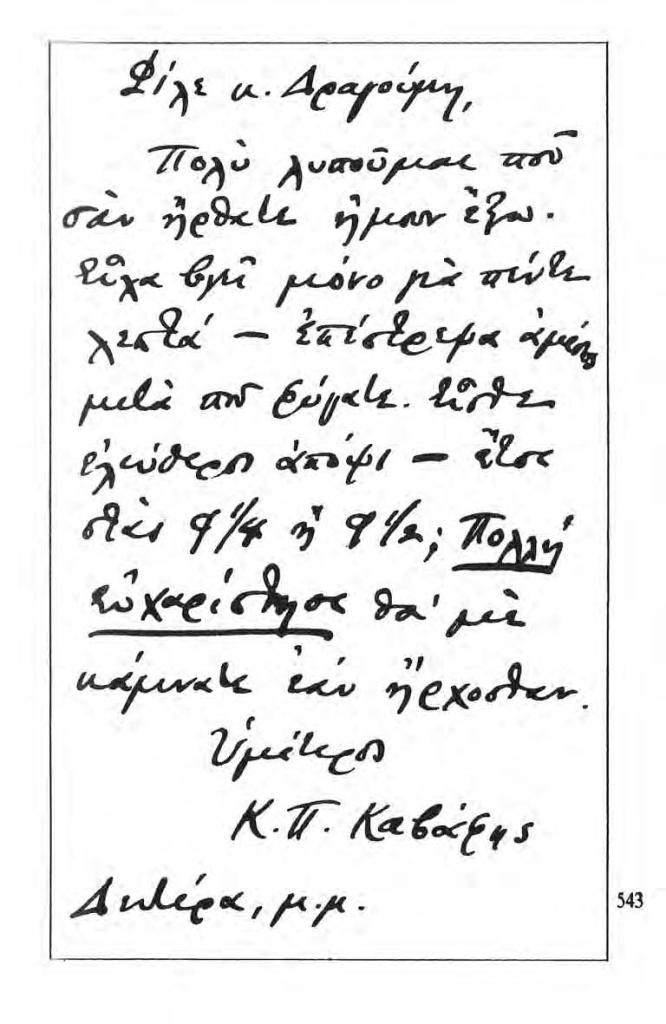 Φίλε κ. Δραγούμη,
Πολὺ λυποῦμαι ποῦ
σὰν ἤρθατε ἤμουν ἔξω.
Εἶχα βγεῖ μόνο γιὰ πέντε
λεπτά — ἐπέστρεψα ἀμέσως
μετὰ ποῦ φύγατε. Εἶσθε
ἐλεύθερος ἀπόψι — ἔτσι
στὰς 9 1/4 ἢ 9 1/2; Πολλή
εὐχαρίστησι θα' μὲ
κάμνατε ἐὰν ἤρχοσθαν.
Ὑμέτερος
Κ. Π. Καβάφης
Δευτέρα, μ.μ.
543